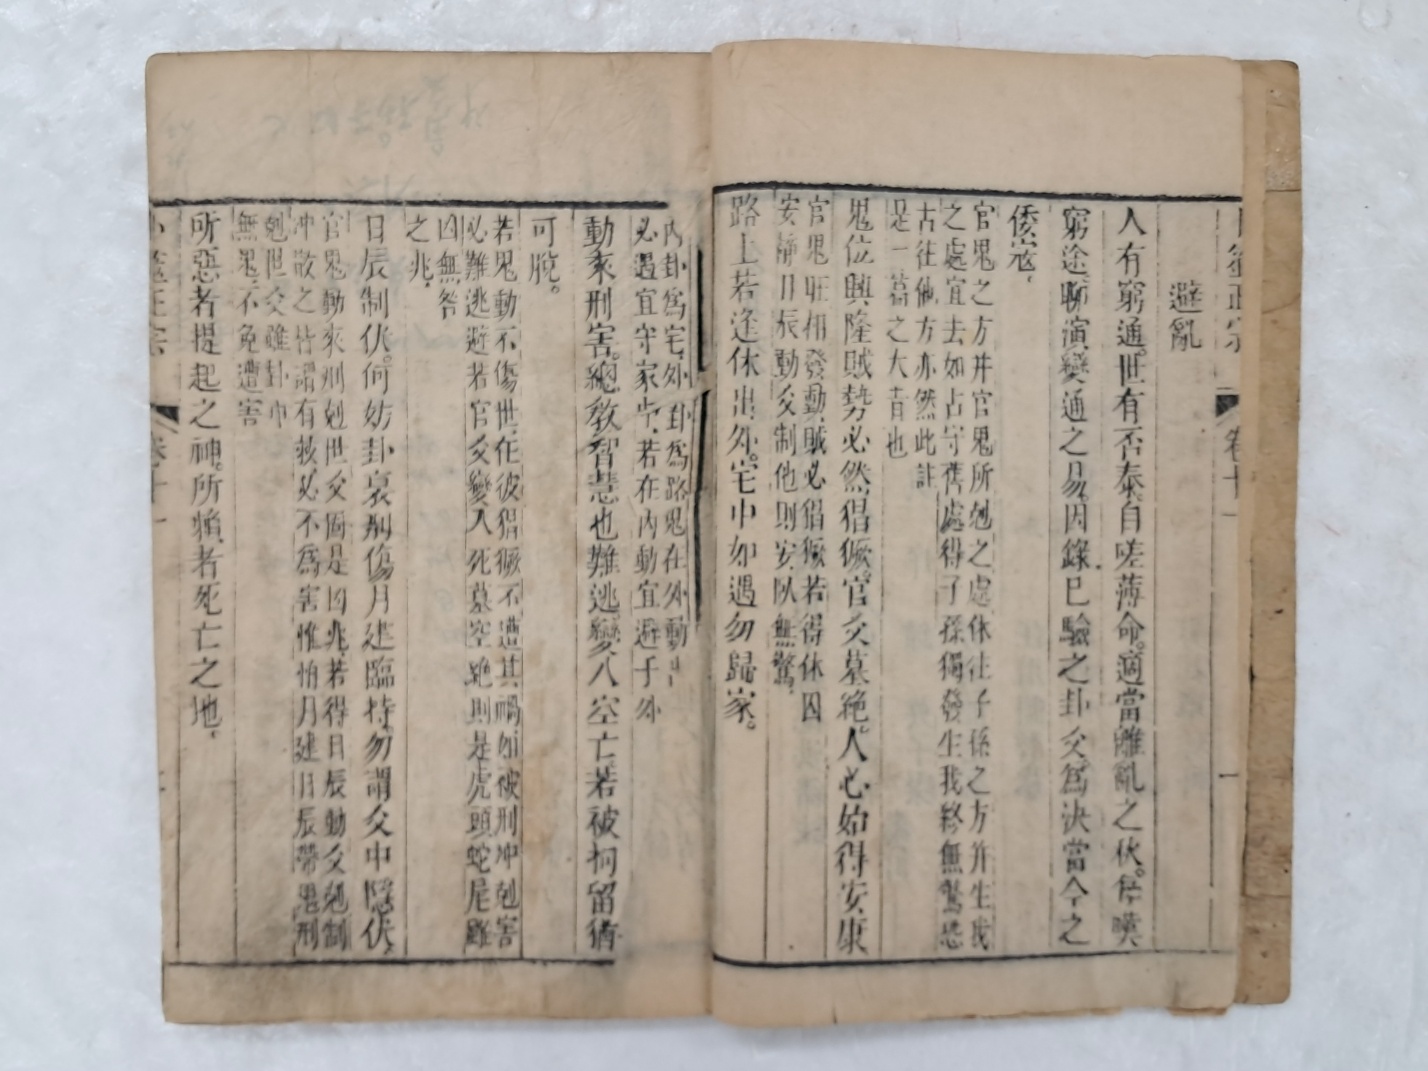 卜筮正宗 卷十一 一
避亂
人有窮通。世有否泰。自嗟薄命。適當離亂之伏。侟嘆
窮途。聊演變通之易。因錄已驗之卦爻。為決當今之
倭寇。
官鬼之方并官鬼所剋之處休往子孫之方并生我
之處宜去如占守舊處得子孫獨發生我終無驚恐
古往他方亦然此註
是一篇之大旨也
鬼位興隆。賊勢必然猖獗。官爻墓絕。人心始得安康
官鬼旺相發動賊必猖獗若得休囚
安靜日辰動爻制他則安臥無驚
路上若逢休出外。宅中如遇勿歸家。
內卦為宅外卦為路鬼在外動
必遇宜守家中若在內動宜避于外
動來刑害。總教智慧也難逃。變入空亡。若被柯留猶
可脫。
若鬼動不傷世在彼猖獗不遭其禍如被刑冲剋害
必難逃避若官爻變入死墓空絕則是虎頭蛇尾雖
凶無咎
之兆
日辰制伏。何妨卦裏刑傷。月建臨持。勿謂爻中隱伏。
官鬼動來刑剋世爻固是凶兆若得日辰動爻剋制
冲散之皆謂有救必不為害惟怕月建日辰帶鬼刑
剋世爻雖卦中
無鬼不免遭害
所惡者提起之神。所賴者死亡之地。
卜筮正宗 卷十一